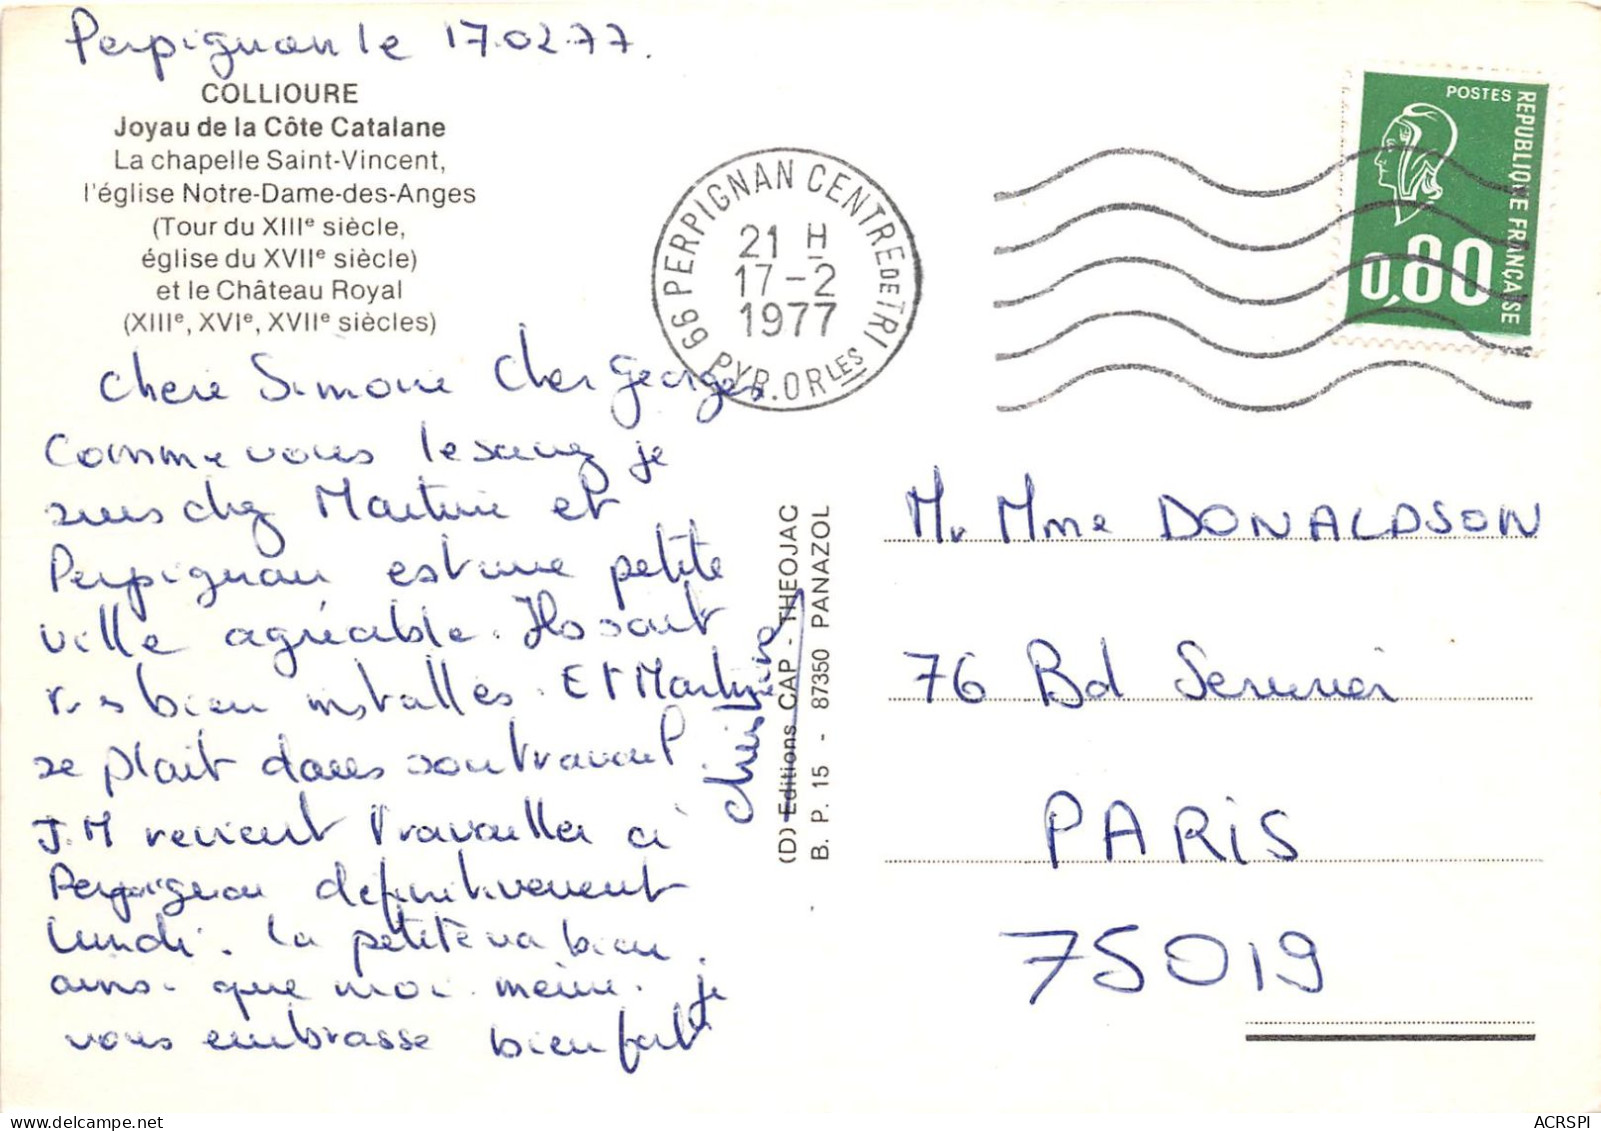 Perpignan le 17.02.77.
COLLIOURE
Joyau de la Côte Catalane
La chapelle Saint-Vincent,
l'église Notre-Dame-des-Anges
(Tour du XIIIe siècle,
église du XVIIe siècle)
et le Château Royal
(XIIIe, XVIe, XVIIe siècles)
Chere Simone Cher Georges
Comme vous le savez je
suis chez Martine et
Perpignan est une petite
ville agréable. Ils sont
très bien installés. Et Martine
se plait dans son travail.
J.M revient travailler à
Perpignan définitivement
lundi. La petite va bien
ainsi que moi même. je
vous embrasse bien fort
Christine
(D) Editions CAP - THEOJAC
B. P. 15 - 87350 PANAZOL
66 PERPIGNAN CENTRE DE TRI
21 H
17-2
1977
PYR. ORLES
POSTES
REPUBLIQUE FRANÇAISE
0,80
Mr Mme DONALDSON
76 Bd Serurier
PARIS
75019
ACRSPI